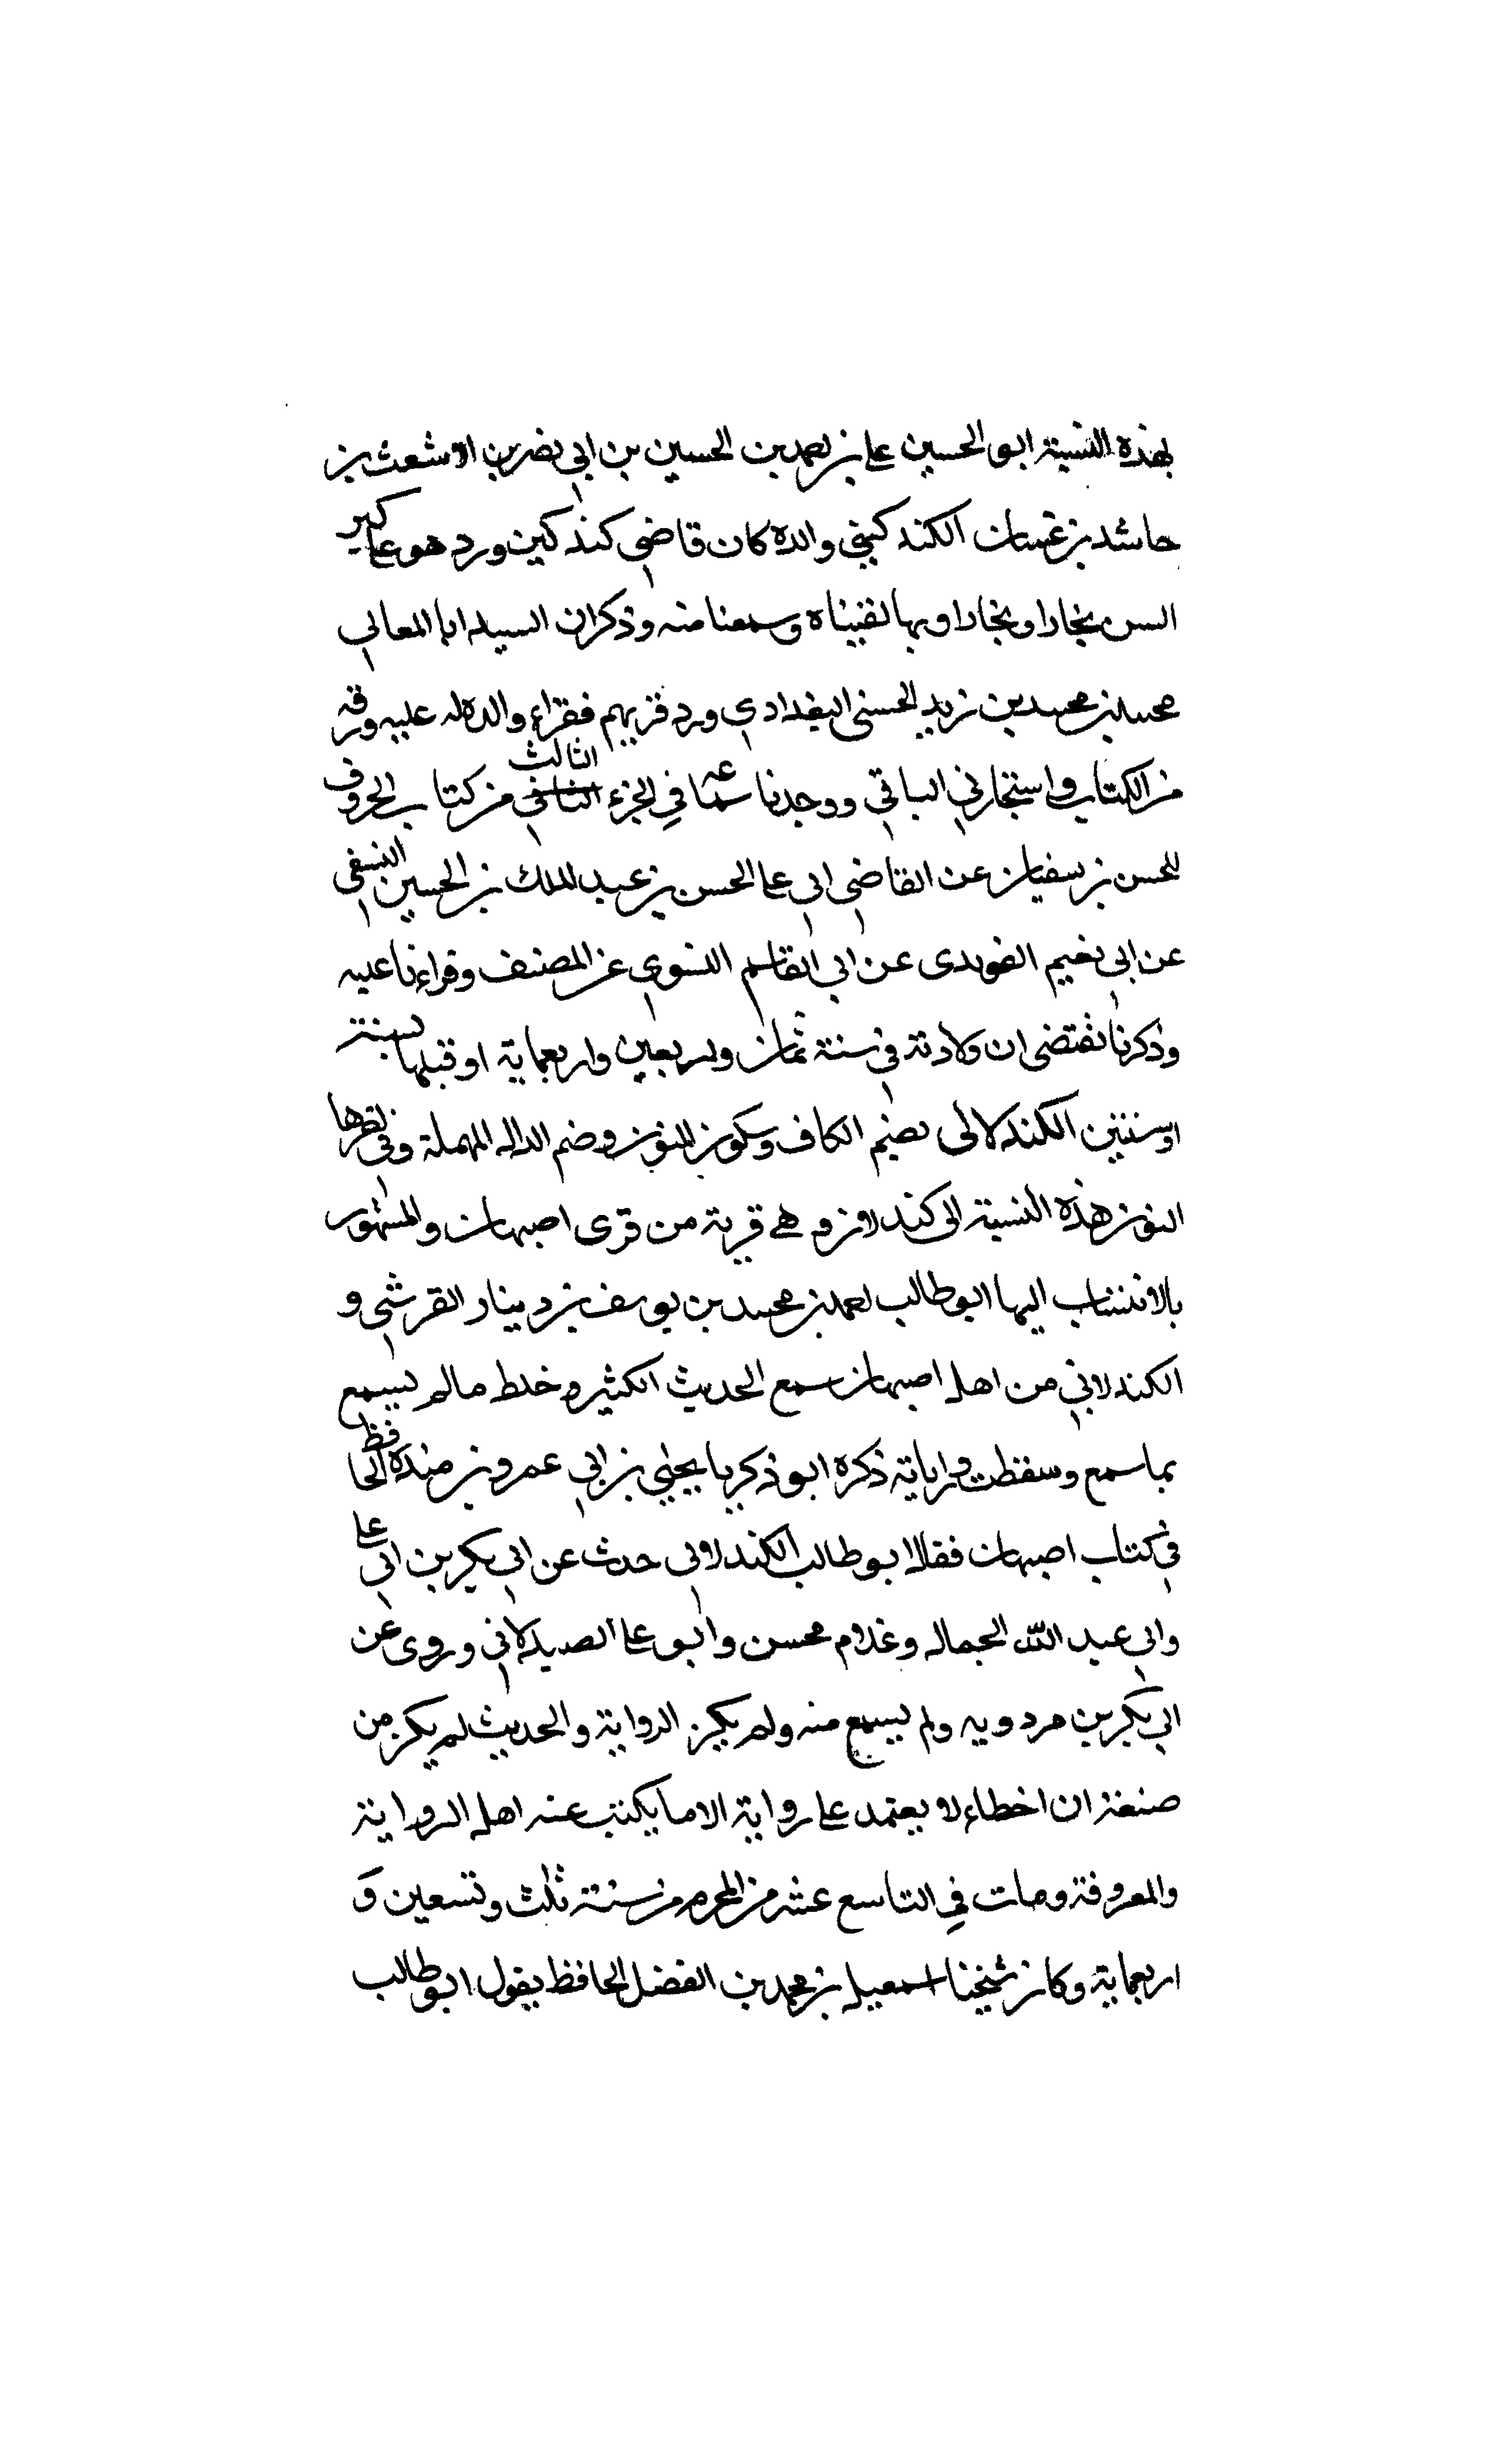 بهذه النسبة ابو الحسين علي بن احمد بن الحسين بن ابي نصر بن الاشعث بن
حاشد بن غسان الكندكيني والده كان قاضي كندكين ورد هو على كبر
السن بخارا وبخارا وبها لقيناه وسمعنا منه وذكر ان السيد ابا المعالي
محمد بن محمد بن زيد الحسني البغدادي ورد قريهم فقراء والده له عليه ورقه
من الكتاب واستجازني الباقي ووجدنا سماعه في الجزء الثالث من كتاب الحروف
للحسن بن سفيان عن القاضي ابي علي الحسن بن عبد الملك بن الحسين النسفي
عن ابي نعيم الفويدى عن ابي القاسم النسوي عن المصنف وقراءنا عليه
وذكرنا نقتضى ان ولادته في سنة ثمان واربعين واربعماية او قبلها بسنة
او سنتين الكندلالى بضم الكاف وسكون النون وضم الدال المهملة وفي اخرها
النون هذه النسبة الى كندلان وهي قرية من قرى اصبهان والمشهور
بالانتساب اليها ابو طالب احمد بن محمد بن يوسف بن دينار القرشي و
الكندلاني من اهل اصبهان سمع الحديث الكثير وخلط ما لم يسمع
بما سمع وسقطت وراياته ذكره ابو ذكريا يحيى بن ابي عمرو بن منده الحافظ
في كتاب اصبهان فقال ابو طالب الكندلانى حدث عن ابي بكر بن ابي علي
وابي عبد الله الجمال وغلام محسن وابو علي الصيدلاني وروى عن
ابي بكر بن مردويه ولم يسمع منه ولم يكن الرواية والحديث لم يكن من
صنعة ان اخطاء لا يعتمد على رواية الا ما يكتب عنه اهل الرواية
والمعروفة ومات في التاسع عشر من المحرم من سنة ثلث وتسعين و
اربعماية وكان شيخنا اسمعيل بن محمد بن الفضل الحافظ يقول ابو طالب